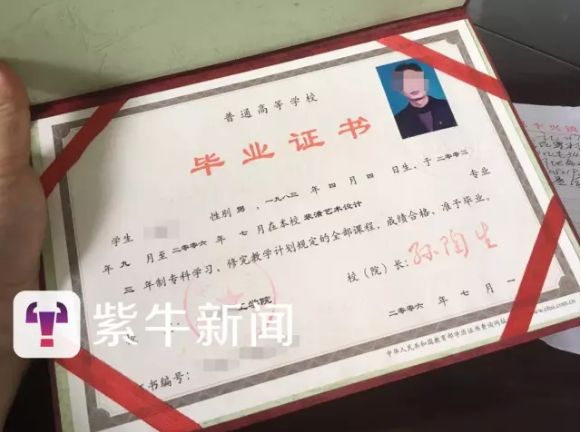 普通高等学校
毕业证书
学生 性别 男 ，一九八三 年 四 月 四 日生，于 二〇〇三
年 九 月至 二〇〇六 年 七 月在本校 装潢艺术设计 专业
三 年制专科学习，修完教学计划规定的全部课程，成绩合格，准予毕业。
学院
校（院）长：孙陶生
二〇〇六 年 七 月 一
证书编号：
中华人民共和国教育部学历证书查询网址
紫牛新闻